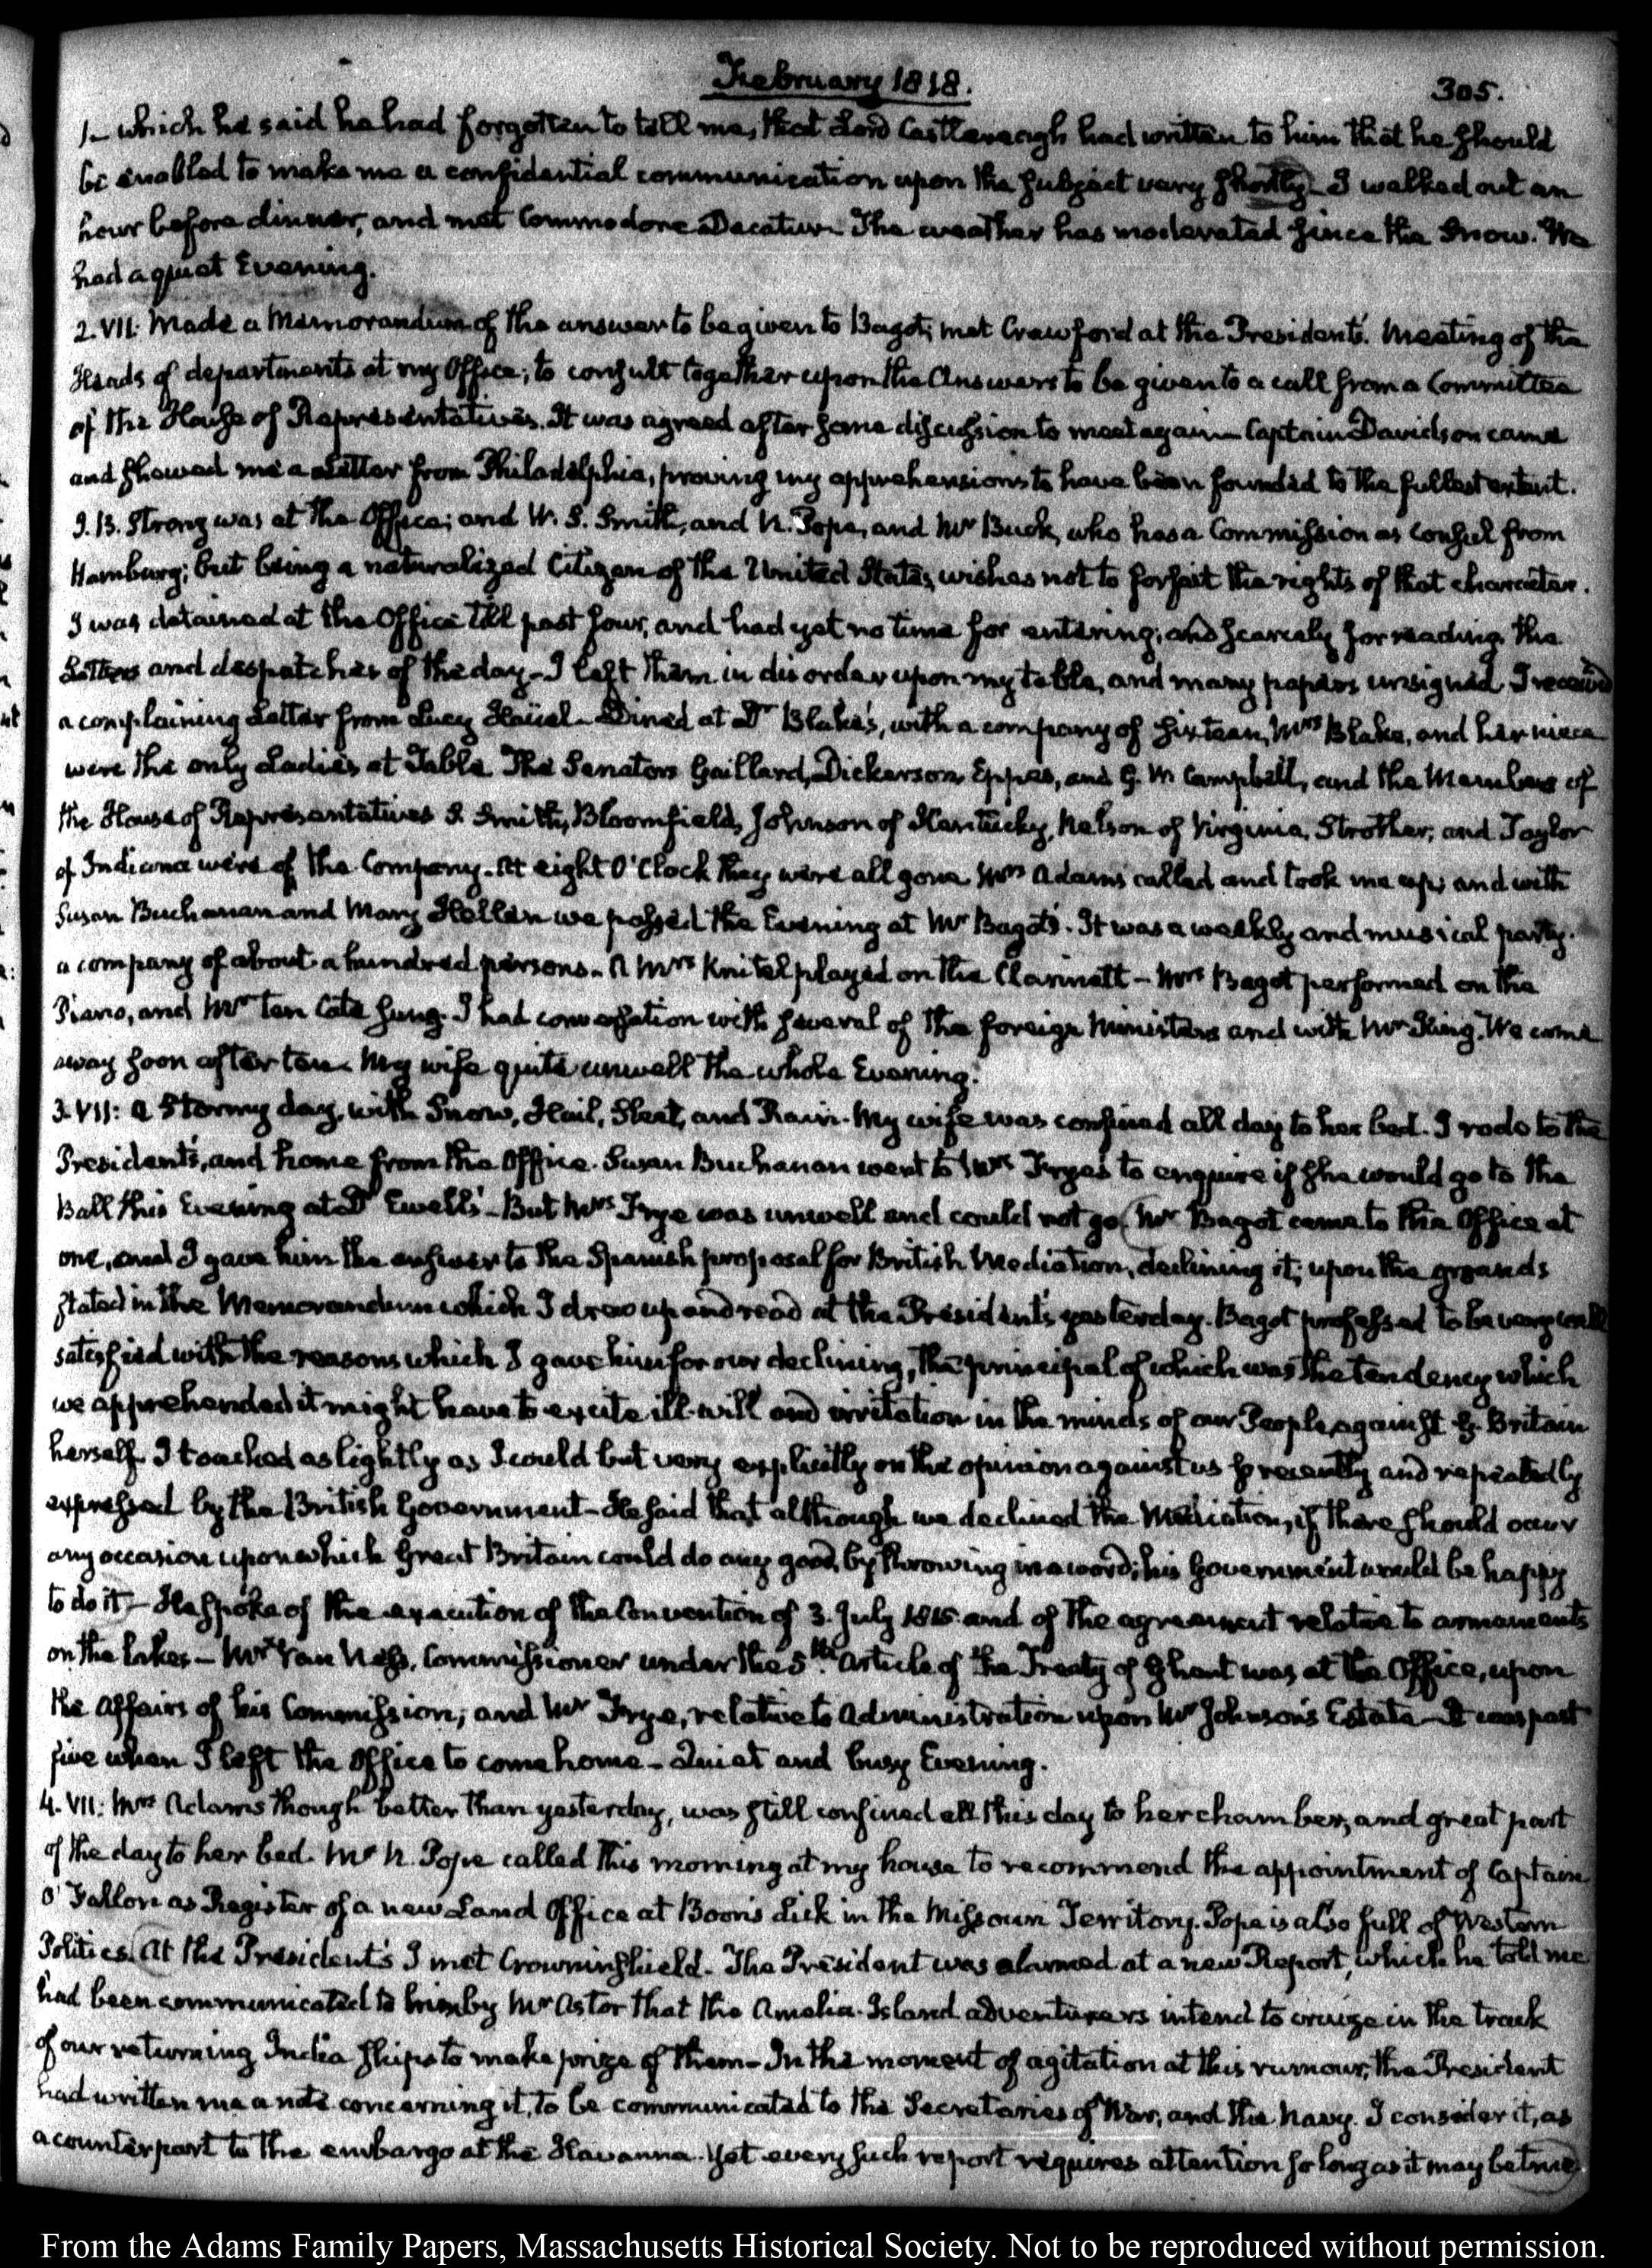 February 1818.
305.
1_ which he said he had forgotten to tell me, that Lord Castlereagh had written to him that he should
be enabled to make me a confidential communication upon the subject very shortly_ I walked out an
hour before dinner, and met Commodore Decatur_ The weather has moderated since the Snow. We
had a quiet Evening.
2. VII: Made a Memorandum of the answer to be given to Bagot; met Crawford at the President's. Meeting of the
Heads of departments at my Office; to consult together upon the Answers to be given to a call from a Committee
of the House of Representatives. It was agreed after some discussion to meet again_ Captain Davidson came
and showed me a Letter from Philadelphia, proving my apprehensions to have been founded to the fullest extent.
J. B. Strong was at the Office; and W. S. Smith, and N. Pope, and Mr Buck, who has a Commission as Consul from
Hamburg; but being a naturalized Citizen of the United States, wishes not to forfeit the rights of that character.
I was detained at the Office till past four, and had yet no time for entering; and scarcely for reading the
Letters and despatches of the day_ I left them in disorder upon my table, and many papers unsigned. I received
a complaining Letter from Lucy Houel_ Dined at Dr Blake's, with a company of sixteen, Mrs Blake, and her niece
were the only Ladies at Table. The Senators Gaillard, Dickerson, Eppes, and G. W. Campbell, and the Members of
the House of Representatives S. Smith, Bloomfield, Johnson of Kentucky, Nelson of Virginia, Strother, and Taylor
of Indiana were of the Company. At eight O'Clock they were all gone Mrs Adams called and took me up; and with
Susan Buchanan and Mary Hellen we passed the Evening at Mr Bagot's. It was a weekly and musical party.
a company of about a hundred persons_ A Mrs Knitel played on the Clarinett_ Mrs Bagot performed on the
Piano, and Mr ten Cate sung. I had conversation with several of the foreign Ministers and with Mr King. We came
away soon after ten. My wife quite unwell the whole Evening.
3. VII: A Stormy day, with Snow, Hail, Sleet, and Rain. My wife was confined all day to her bed. I rode to the
President's, and home from the Office. Susan Buchanan went to Mrs Frye's to enquire if she would go to the
Ball this Evening at Dr Ewell's_ But Mrs Frye was unwell and could not go. (Mr Bagot came to the Office at
one, and I gave him the answer to the Spanish proposal for British Mediation, declining it; upon the grounds
stated in the Memorandum which I drew up and read at the President's yesterday. Bagot professed to be very well
satisfied with the reasons which I gave him for our declining, the principal of which was the tendency which
we apprehended it might have to excite ill-will and irritation in the minds of our People, against G. Britain
herself. I touched as lightly as I could but very explicitly on the opinion against us so recently and repeatedly
expressed by the British Government_ He said that although we declined the Mediation, if there should occur
any occasion upon which Great Britain could do any good, by throwing in a word; his Government would be happy
to do it_ He spoke of the execution of the Convention of 3. July 1815. and of the agreement relative to armaments
on the Lakes_ Mr Van Ness, Commissioner under the 5th Article of the Treaty of Ghent was at the Office, upon
the affairs of his Commission; and Mr Frye, relative to Administration upon Mr Johnson's Estate_ It was past
five when I left the Office to come home_ Quiet and busy Evening.
4. VII: Mrs Adams though better than yesterday, was still confined all this day to her chamber, and great part
of the day to her bed. Mr N. Pope called this morning at my house to recommend the appointment of Captain
O'Fallon as Register of a new Land Office at Boon's Lick in the Missouri Territory. Pope is also full of Western
Politics. (At the President's I met Crowninshield. The President was alarmed at a new Report, which he told me
had been communicated to him by Mr Astor that the Amelia-Island adventurers intend to cruize in the track
of our returning India ships to make prize of them_ In the moment of agitation at this rumour, the President
had written me a note concerning it, to be communicated to the Secretaries of War, and the Navy. I consider it, as
a counterpart to the embargo at the Havanna. Yet every such report requires attention so long as it may be true)
From the Adams Family Papers, Massachusetts Historical Society. Not to be reproduced without permission.